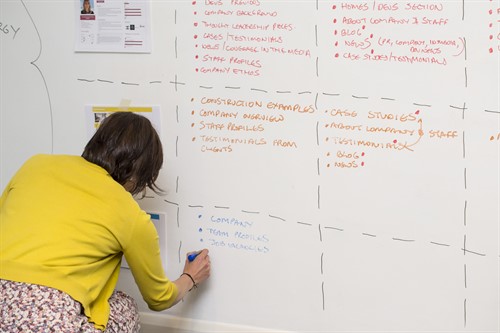 ERGY
COMPANY BACKGROUND
THOUGHT LEADERSHIP PIECES
CASES/TESTIMONIALS
NEWS/COVERAGE IN THE MEDIA
STAFF PROFILES
COMPANY ETHOS
HOMES / DEVS SECTION
ABOUT COMPANY & STAFF
BLOG
NEWS (PR, COMPANY, NETWORK,
BUSINESS)
CASE STUDIES/TESTIMONIALS
CONSTRUCTION EXAMPLES
COMPANY OVERVIEW
STAFF PROFILES
TESTIMONIALS FROM
CLIENTS
CASE STUDIES
ABOUT COMPANY & STAFF
TESTIMONIALS
BLOG
NEWS
COMPANY
TEAM PROFILES
JOB VACANCIES